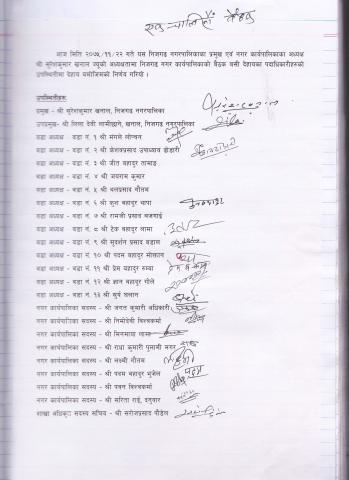 एक चालिसौं बैठक
आज मिति २०७५/११/२२ गते यस निजगढ नगरपालिकाका प्रमुख एवं नगर कार्यपालिकाका अध्यक्ष
श्री सुरेशकुमार खनाल ज्यूको अध्यक्षतामा निजगढ नगर कार्यपालिकाको बैठक बसी देहायका पदाधिकारीहरुको
उपस्थितीमा देहाय बमोजिमको निर्णय गरियो ।
उपस्थितीहरु
प्रमुख - श्री सुरेशकुमार खनाल, निजगढ नगरपालिका
उपप्रमुख- श्री लिला देवी लामीछाने, खनाल, निजगढ नगरपालिका
वडा अध्यक्ष - वडा नं. १ श्री मंगले लोप्चन
वडा अध्यक्ष - वडा नं. २ श्री केशवप्रसाद उपाध्याय छेडारी
वडा अध्यक्ष - वडा नं. ३ श्री जीत बहादुर तामाङ
वडा अध्यक्ष - वडा नं. ४ श्री जयराम कुमार
वडा अध्यक्ष - वडा नं. ५ श्री बलप्रसाद गौतम
वडा अध्यक्ष - वडा नं. ६ श्री कृश बहादुर थापा
वडा अध्यक्ष - वडा नं. ७ श्री रामजी प्रसाद बजगाई
वडा अध्यक्ष - वडा नं. ८ श्री टेक बहादुर लामा
वडा अध्यक्ष - वडा नं. ९ श्री सुदर्शन प्रसाद बडाल
वडा अध्यक्ष - वडा नं. १० श्री पदम बहादुर मोक्तान
वडा अध्यक्ष - वडा नं. ११ श्री प्रेम बहादुर रुम्बा
वडा अध्यक्ष - वडा नं. १२ श्री ज्ञान बहादुर गोले
वडा अध्यक्ष - वडा नं. १३ श्री सुर्य घलान
नगर कार्यपालिका सदस्य - श्री जनता कुमारी अधिकारी
नगर कार्यपालिका सदस्य - श्री निमादेवी विश्वकर्मा
नगर कार्यपालिका सदस्य - श्री मिनमाया लामा
नगर कार्यपालिका सदस्य - श्री राधा कुमारी पुलामी मगर
नगर कार्यपालिका सदस्य - श्री लक्ष्मी गौतम
नगर कार्यपालिका सदस्य - श्री पदम बहादुर भुजेल
नगर कार्यपालिका सदस्य - श्री पवन विश्वकर्मा
नगर कार्यपालिका सदस्य - श्री सरिता राई, दनुवार
शाखा अधिकृत सदस्य सचिव - श्री सरोजप्रसाद पौडेल